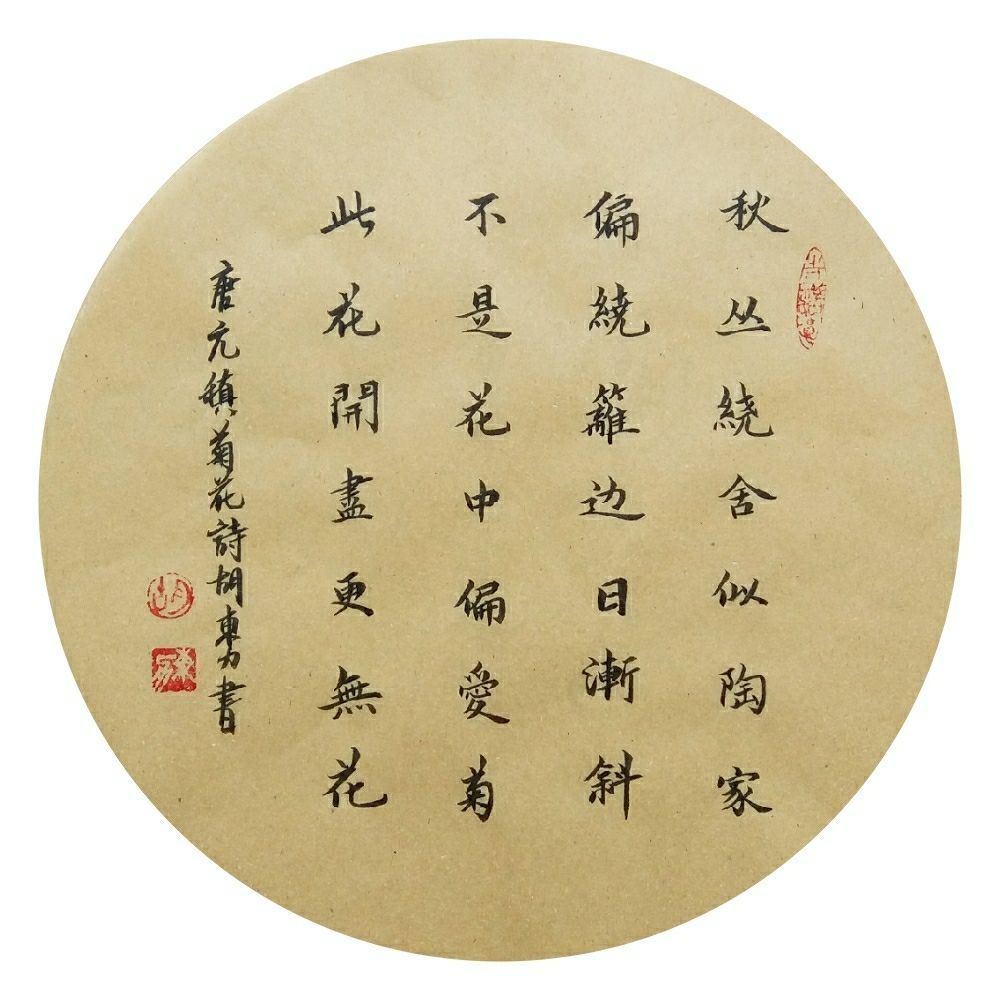 秋丛繞舍似陶家
偏繞籬边日漸斜
不是花中偏愛菊
此花開盡更無花
唐元稹菊花詩胡東力書
胡